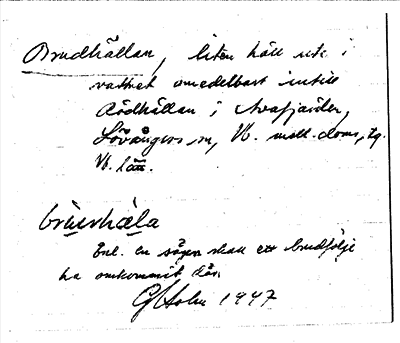 Brudhällan, liten häll ute i
vattnet omedelbart intill
Rödhällan i Avafjärden,
Lövångers sn, Vb. mell. doms. tg.
Vb. län.
Enl. en sägen skall ett brudfölje
ha omkommit där.
G Holm 1947